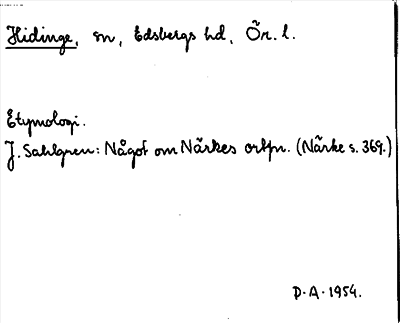 Hidinge, sn, Edsbergs hd, Ör. l.
Etymologi.
J. Sahlgren: Något om Närkes ortfn. (Närke s. 369.)
D. A. 1954.